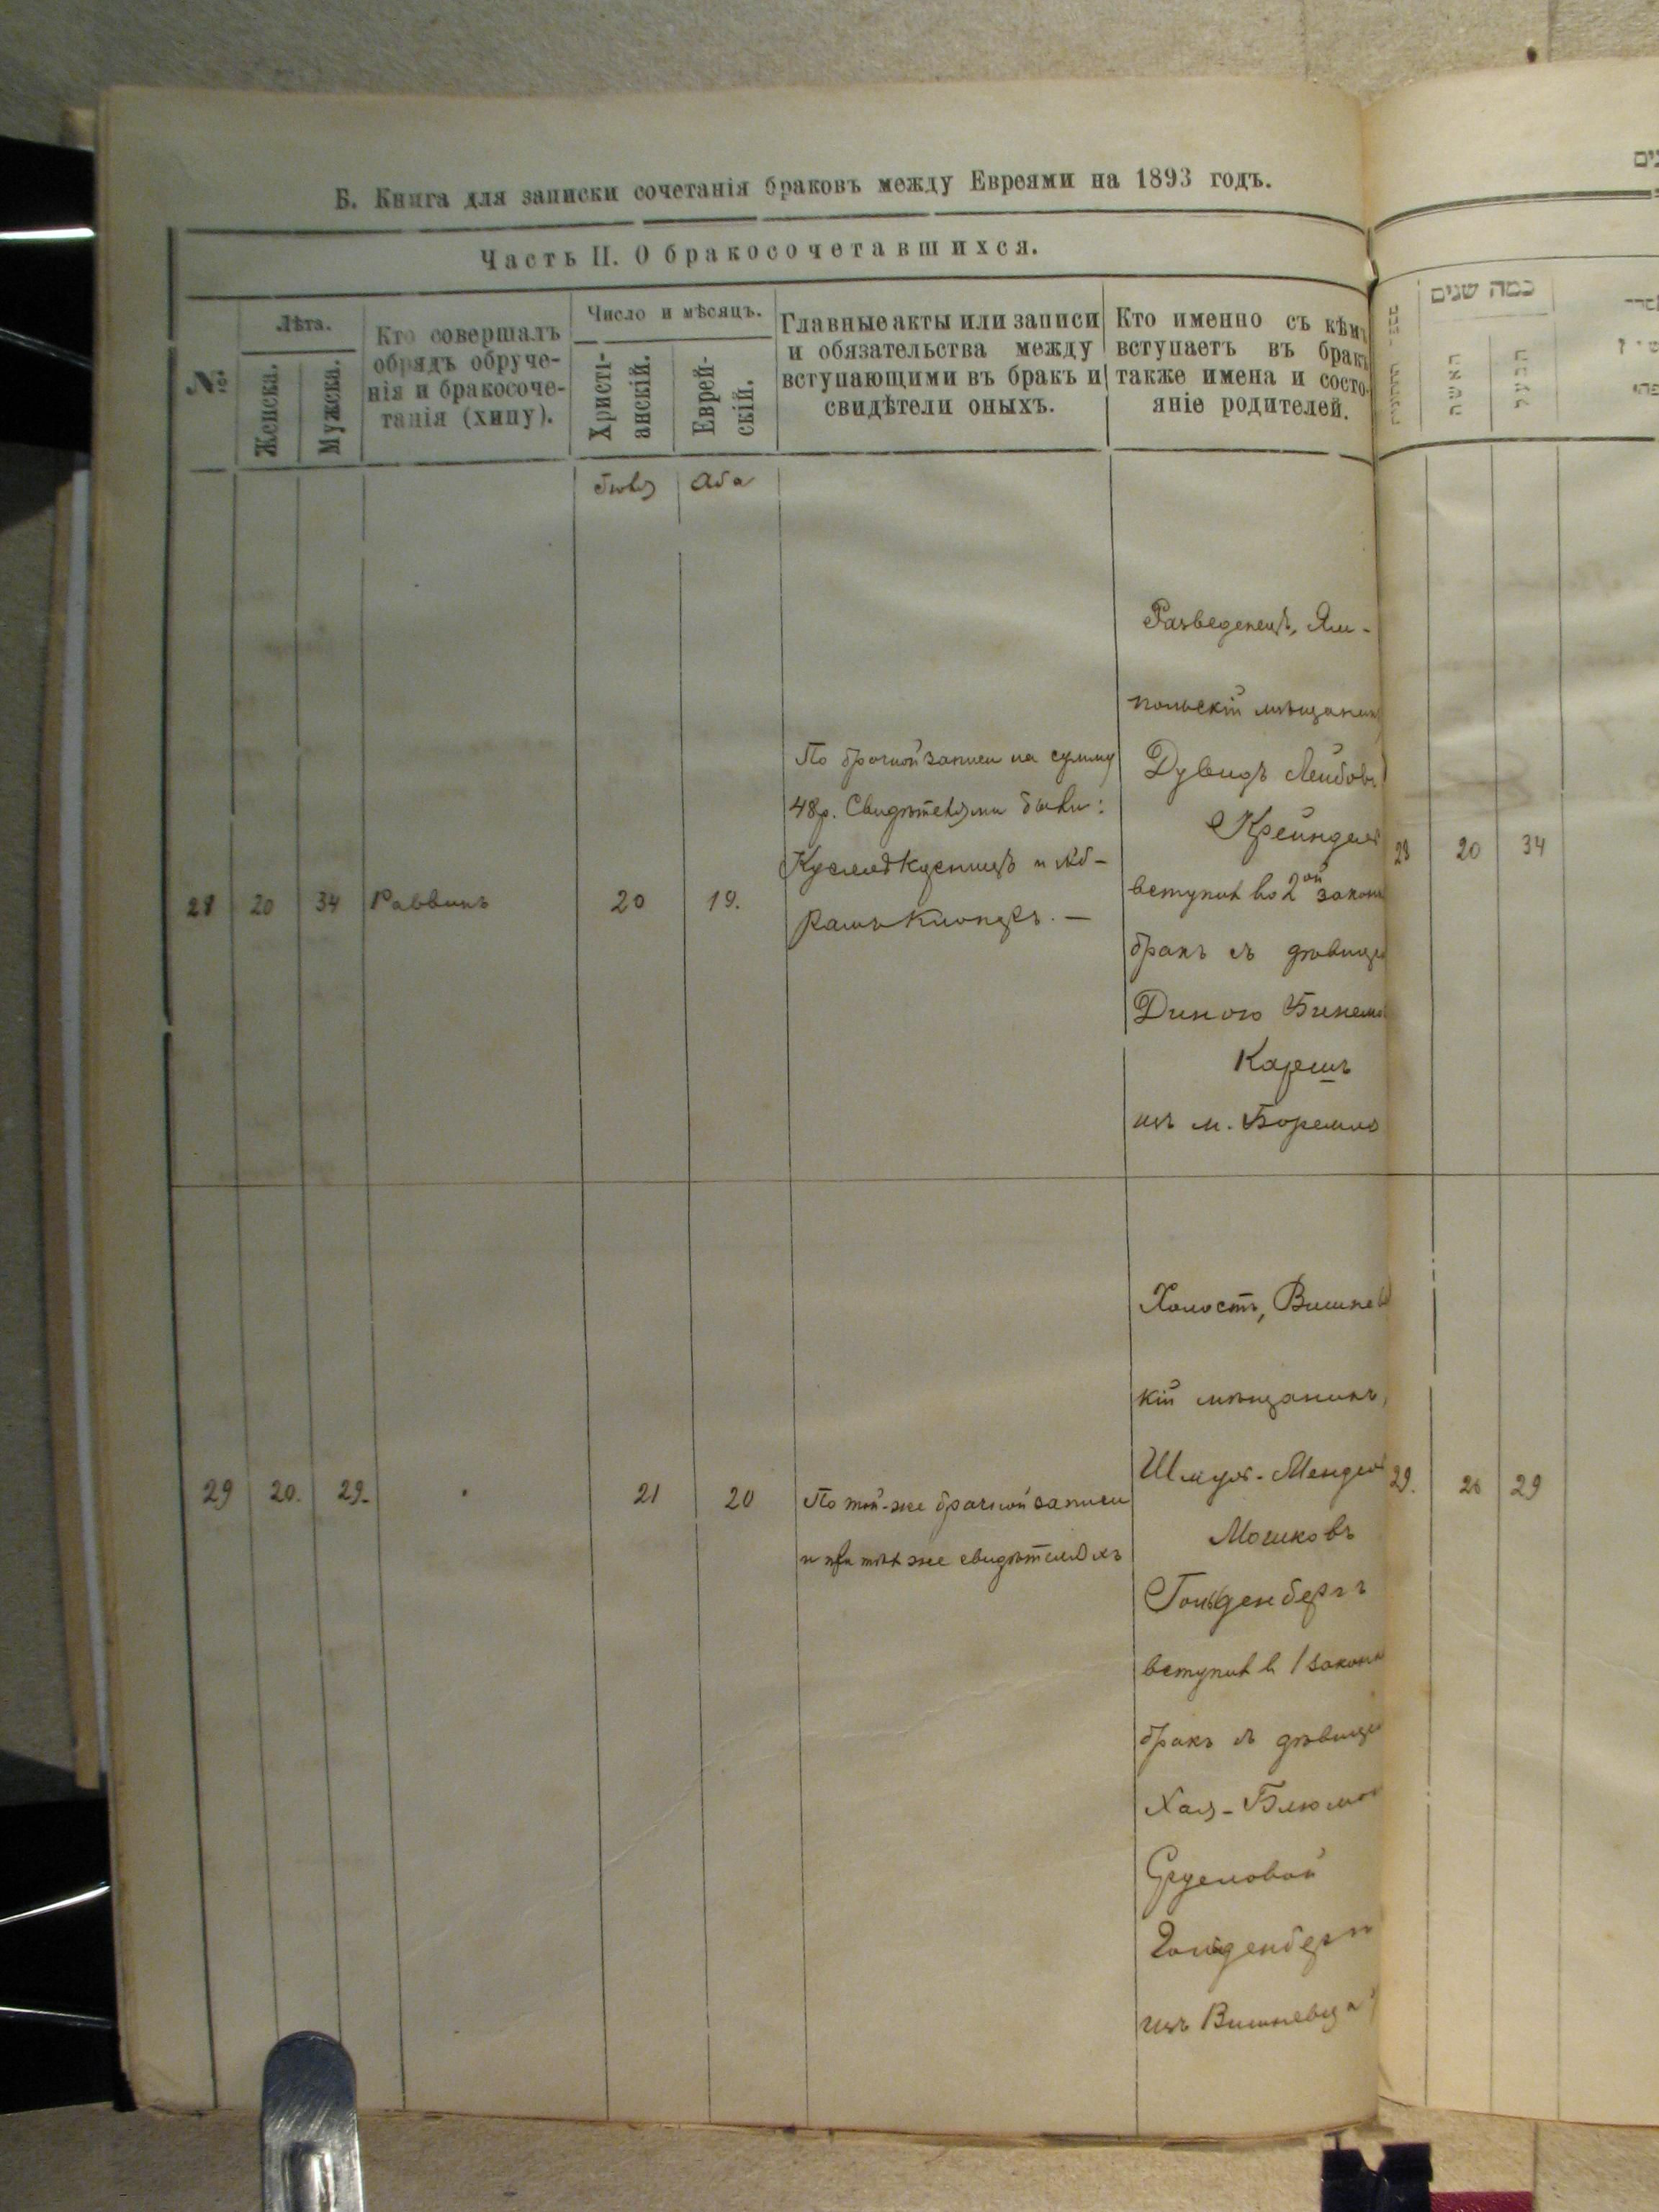 Б. Книга для записки сочетанія браковъ между Евреями на 1893 годъ.
Часть II. О бракосочетавшихся.
№
Лѣта.
Женска.
Мужска.
Кто совершалъ
обрядъ обруче-
нія и бракосоче-
танія (хипу).
Число и мѣсяцъ.
Христі-
анскій.
Еврей-
скій.
Главные акты или записи
и обязательства между
вступающими въ бракъ и
свидѣтели оныхъ.
Кто именно съ кѣмъ
вступаетъ въ бракъ
также имена и состо-
яніе родителей.
Іюля Аба
28 20 34 Раввинъ 20 19.
По брачной записи на сумму
48р. Свидѣтелями были:
и Аб-
рамъ
Разведенецъ, Ям-
польскій мѣщанинъ
Дувидъ Лейбовъ
Крейндель
вступил во 2ой закон
бракъ съ дѣвице
Диною
из м. Боремля
29 20. 29. 21 20
По той-же брачной записи
и при тѣх же свидѣтелях
Холостъ, Вишнев
кій мѣщанинъ,
Шмуль-Мендель
Мошковъ
Гольденбергъ
вступил в 1 законн
бракъ съ дѣвице
Хая-Блюмою
Гольденбергъ
изъ Вишневца
כמה שנים
האשה
הבעל
28 20 34
29. 20 29